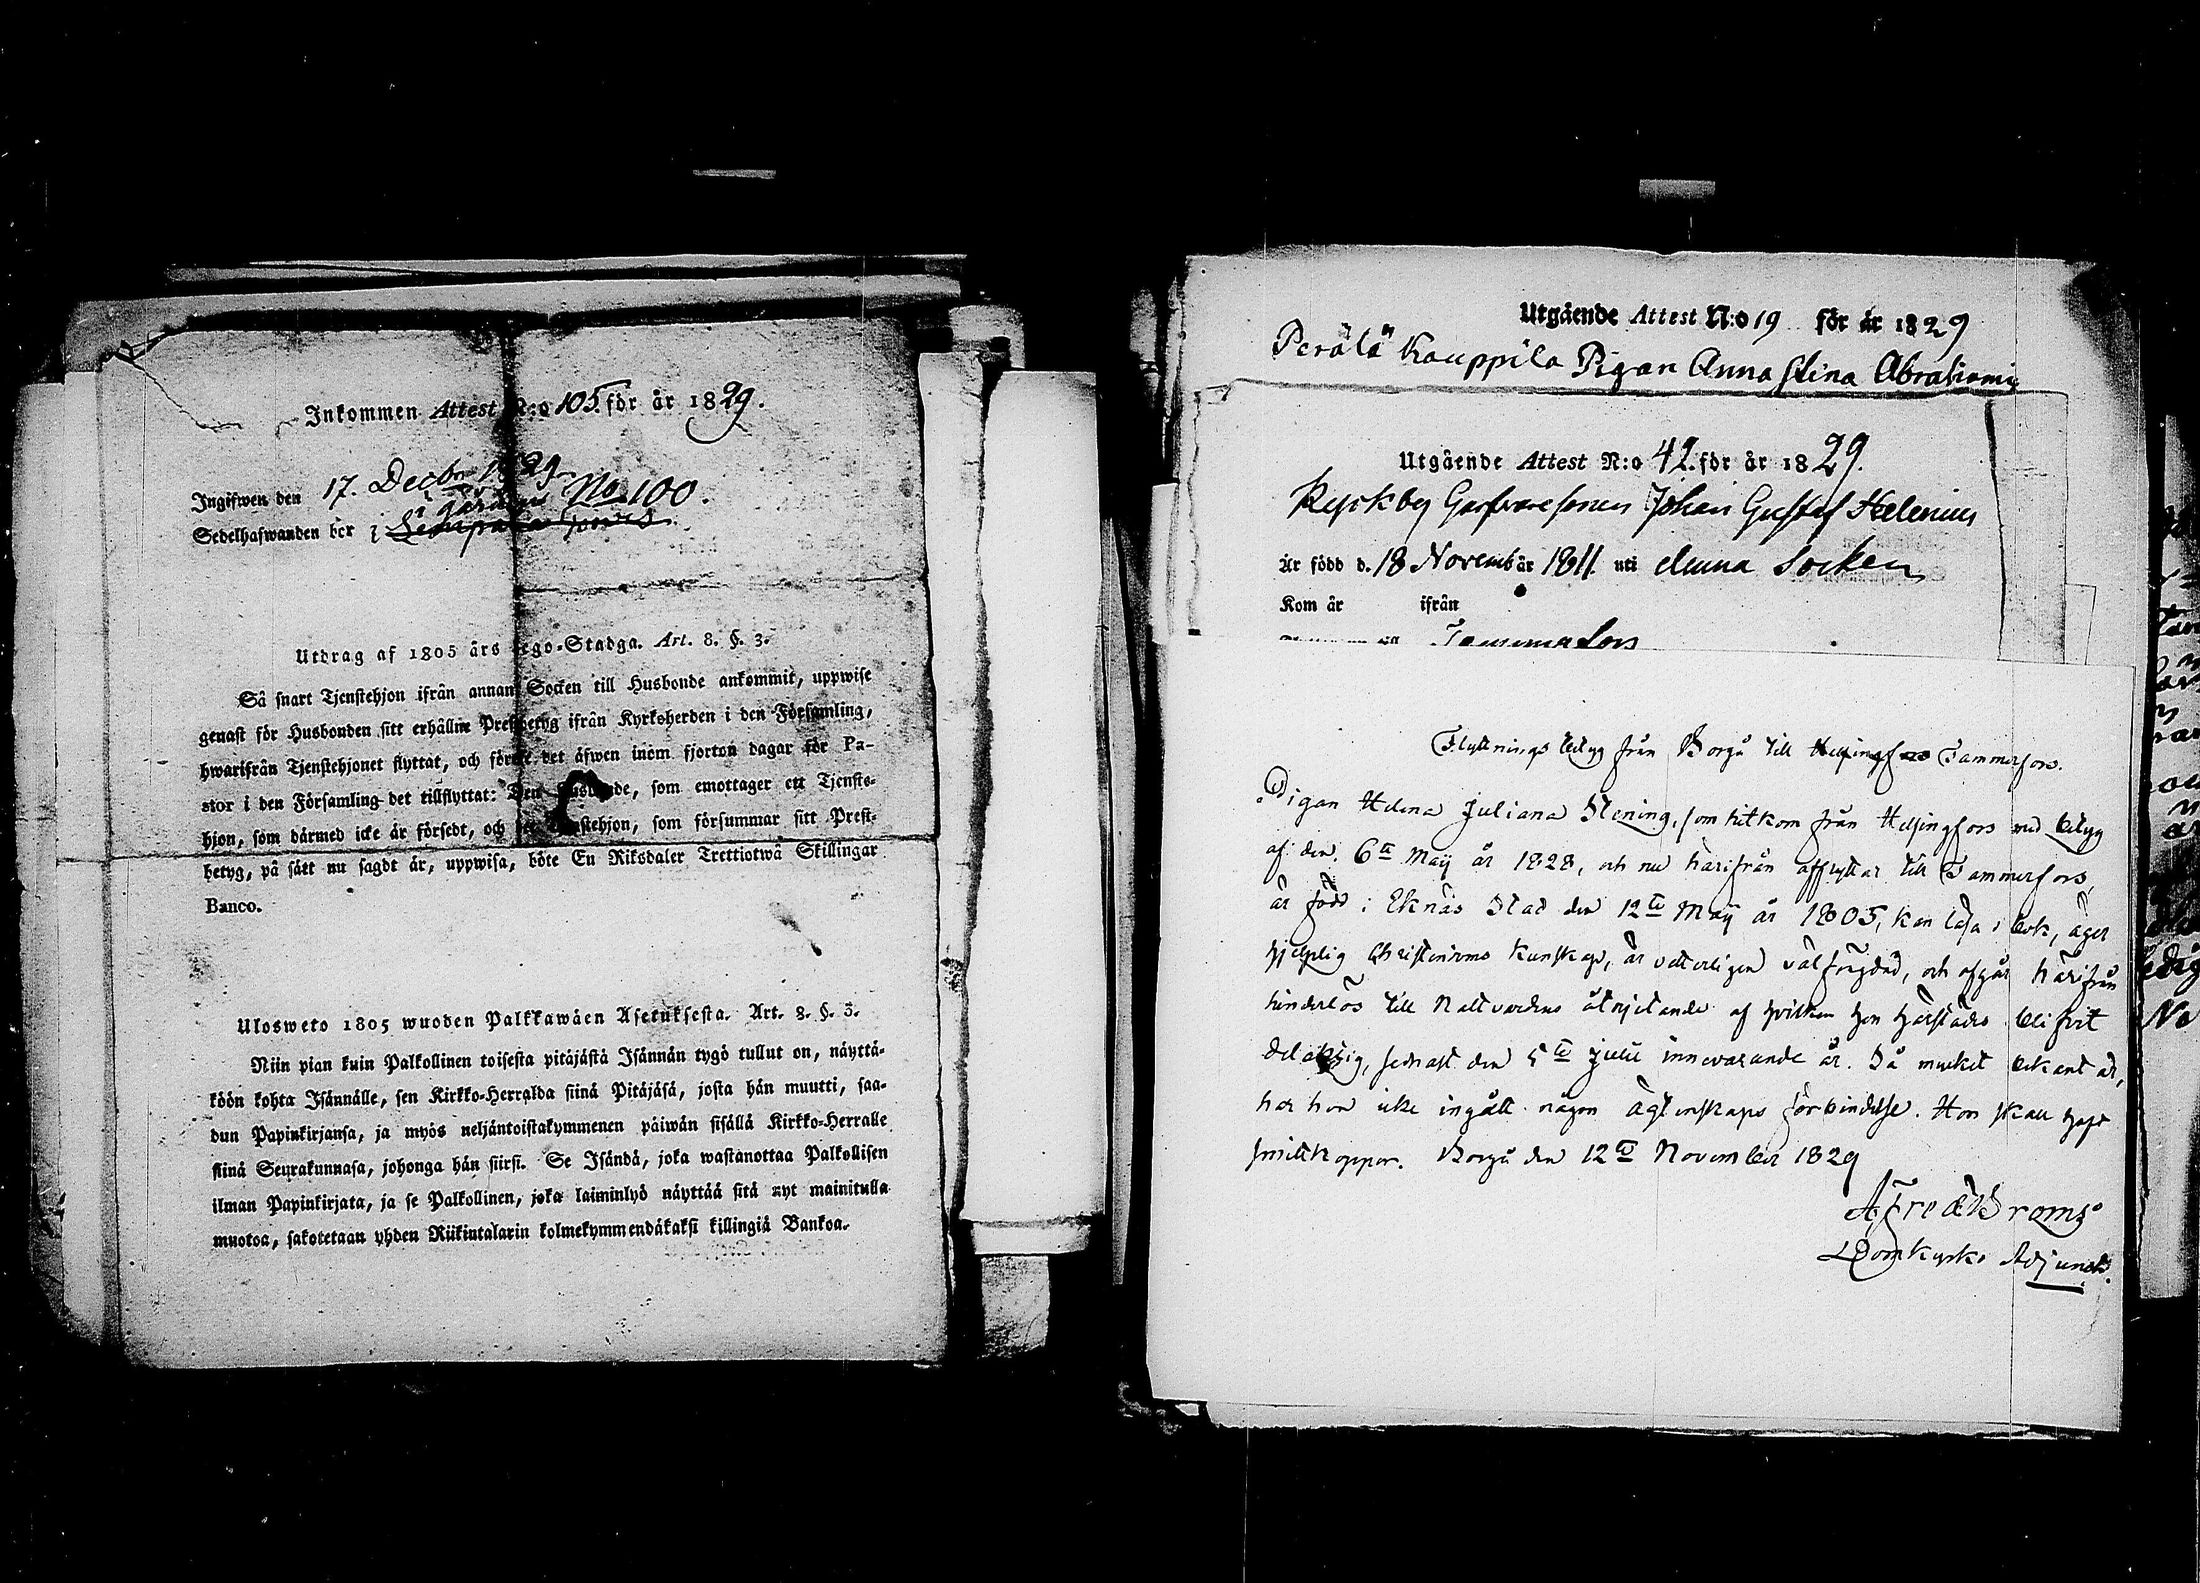 Inkommen Attest N:o 105. för år 1829.
Ingifwen den 17. Decbr 1829
i gården No 100.
Sedelhafwanden bor i
Utdrag af 1805 års Lego-Stadga. Art. 8. §. 3.
Så snart Tjenstehjon ifrån annan Socken till Husbonde ankommit, uppwise
genast för Husbonden sitt erhållne Prestbetyg ifrån Kyrkoherden i den Församling,
hwarifrån Tjenstehjonet flyttat, och förete det äfwen inom fjorton dagar för Pa-
stor i den Församling det tillflyttat: Den Husbonde, som emottager ett Tjenste-
hjon, som dårmed icke är försedt, och det Tjenstehjon, som försummar sitt Prest-
betyg, på sått nu sagdt år, uppwisa, böte En Riksdaler Trettiotwå Skillingar
Banco.
Ulosweto 1805 wuoden Palkkawäen Asetuksesta. Art. 8. §. 3.
Niin pian kuin Palkollinen toisesta pitäjästä Isännän tygö tullut on, näyttä-
köön kohta Isännälle, sen Kirkko-Herralda siinä Pitäjäsä, josta hän muutti, saa-
dun Papinkirjansa, ja myös neljäntoistakymmenen päiwän sisällä Kirkko-Herralle
siinä Seurakunnasa, johonga hän siirsi. Se Isändä, joka wastanottaa Palkollisen
ilman Papinkirjata, ja se Palkollinen, joka laiminlyö näyttää sitä nyt mainitulla
muotoa, sakotetaan yhden Riikintalarin kolmekymmendäkaksi killingiä Bankoa.
Utgående Attest N:o 19 för år 1829
Perälä Kauppila Pigan Anna Stina Abrahams
Utgående Attest N:o 42. för år 1829.
Ryckby Johan Gustaf Helenius
Är född d. 18 Novemb år 1811 uti denna Socken
Kom år ifrån
Tammerfors
Flyttnings betyg från Borgå till Helsingfors Tammerfors.
Pigan Helena Juliana Stening, som hitkom från Helsingfors med betyg
af den 6te Maij år 1828, och nu härifrån afflyttar till Tammerfors,
är född i Eknäs Stad den 12te Maij år 1805, kan läsa i bok, äger
hjelplig Christendoms kunskap, är väl frägdad, och afgår härifrån
hinderlös till Nattvardens åtnjutande af hvilken hon härstädes blifvit
delaktig, sednast den 5te Julii innevarande år. Så mycket bekant är,
har hon icke ingått någon ägtenskaps förbindelse. Hon skall haft
smittkoppor. Borgå den 12te November 1829
Domkyrko Adjunct.